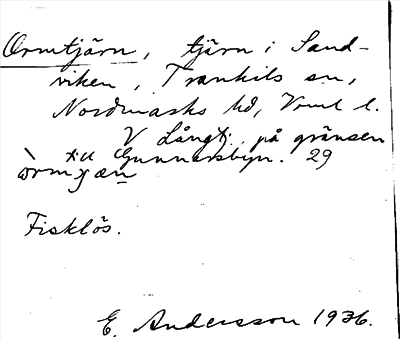 Ormtjärn, tjärn i Sand-
viken, Trankils sn,
Nordmarks hd, Vrml l.
V Långtj. på gränsen
till Gunnarsbyn. 29
Fisklös.
E. Andersson 1936.